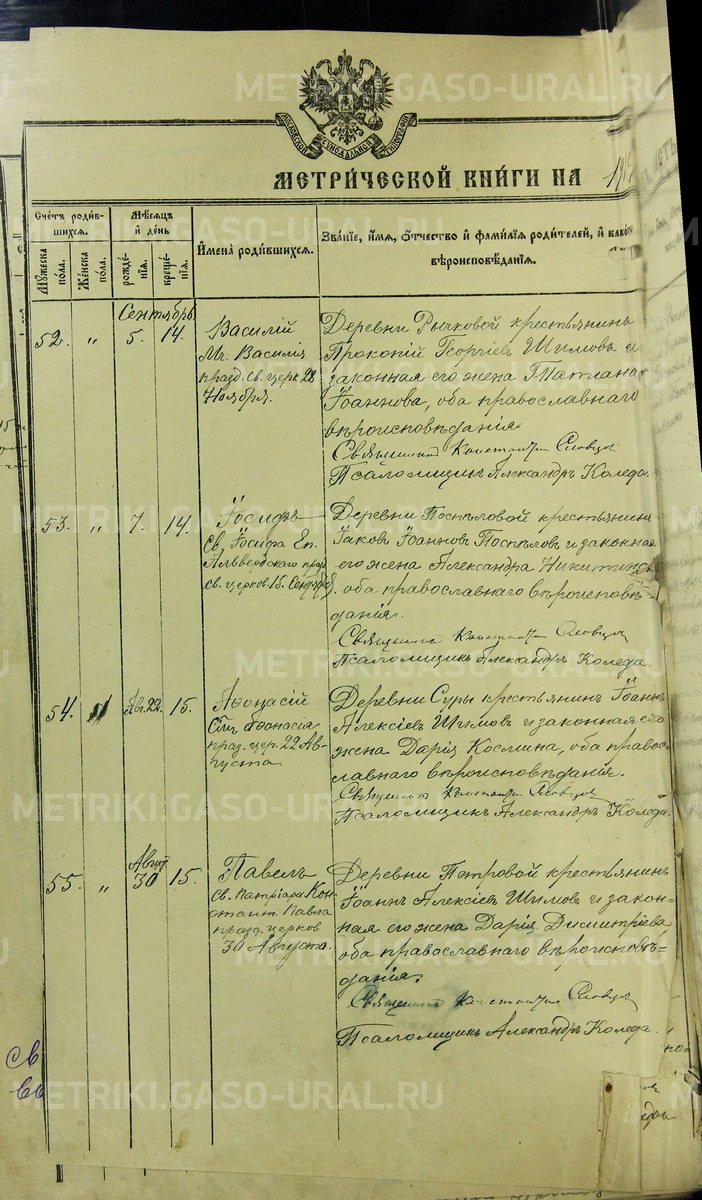 МЕТРИ́ЧЕСКОЙ КНИ́ГИ НА
Счетъ родив-
шихся.
Мужеска
пола.
Женска
пола.
Мѣсяцъ
и день
рожде-
нія.
креще-
нія.
Имена родившихся.
Званіе, имя, отчество и фамилія родителей, и какого
вѣроисповѣданія.
Сентябрь
52. " 5. 14.
Василій
Мч. Василія
празд. св. церк 28
Ноября.
Деревни Рычковой крестьянинъ
Прокопій Георгіев Шимовъ и
законная его жена Татіана
Іоаннова, оба православнаго
вѣроисповѣданія
Священникъ Константинъ Словцовъ
Псаломщикъ Александръ Коледа.
53. " 7. 14.
Іосифъ
Св. Іосифа Еп.
Альвердскаго празд
св. церков. 15. Сентября
Деревни Поспѣловой крестьянинъ
Іаковъ Іоанновъ Поспѣловъ и законная
его жена Александра Никитина
оба православнаго вѣроисповѣ-
данія.
Священникъ Константинъ Словцовъ
Псаломщикъ Александръ Коледа.
54. " Ав. 22. 15.
Аѳонасій
Св. Аѳонасія
праз. цер. 22 Ав-
густа
Деревни Суры крестьянин Іоаннъ
Алексіевъ Шимовъ и законная его
жена Дарія Космина, оба право-
славнаго вѣроисповѣданія.
Священникъ Константинъ Словцовъ
Псаломщикъ Александръ Коледа.
Август
55. " 30 15.
Павелъ
Св. Патріарха Кон-
стант. Павла
празд. церков
30 Августа.
Деревни Петровой крестьянинъ
Іоаннъ Алексіев Шимовъ и закон-
ная его жена Дарія Димитріева
оба православнаго вѣроисповѣ-
данія.
Священникъ Константинъ Словцовъ
Псаломщикъ Александръ Коледа.
METRIKI.GASO-URAL.RU